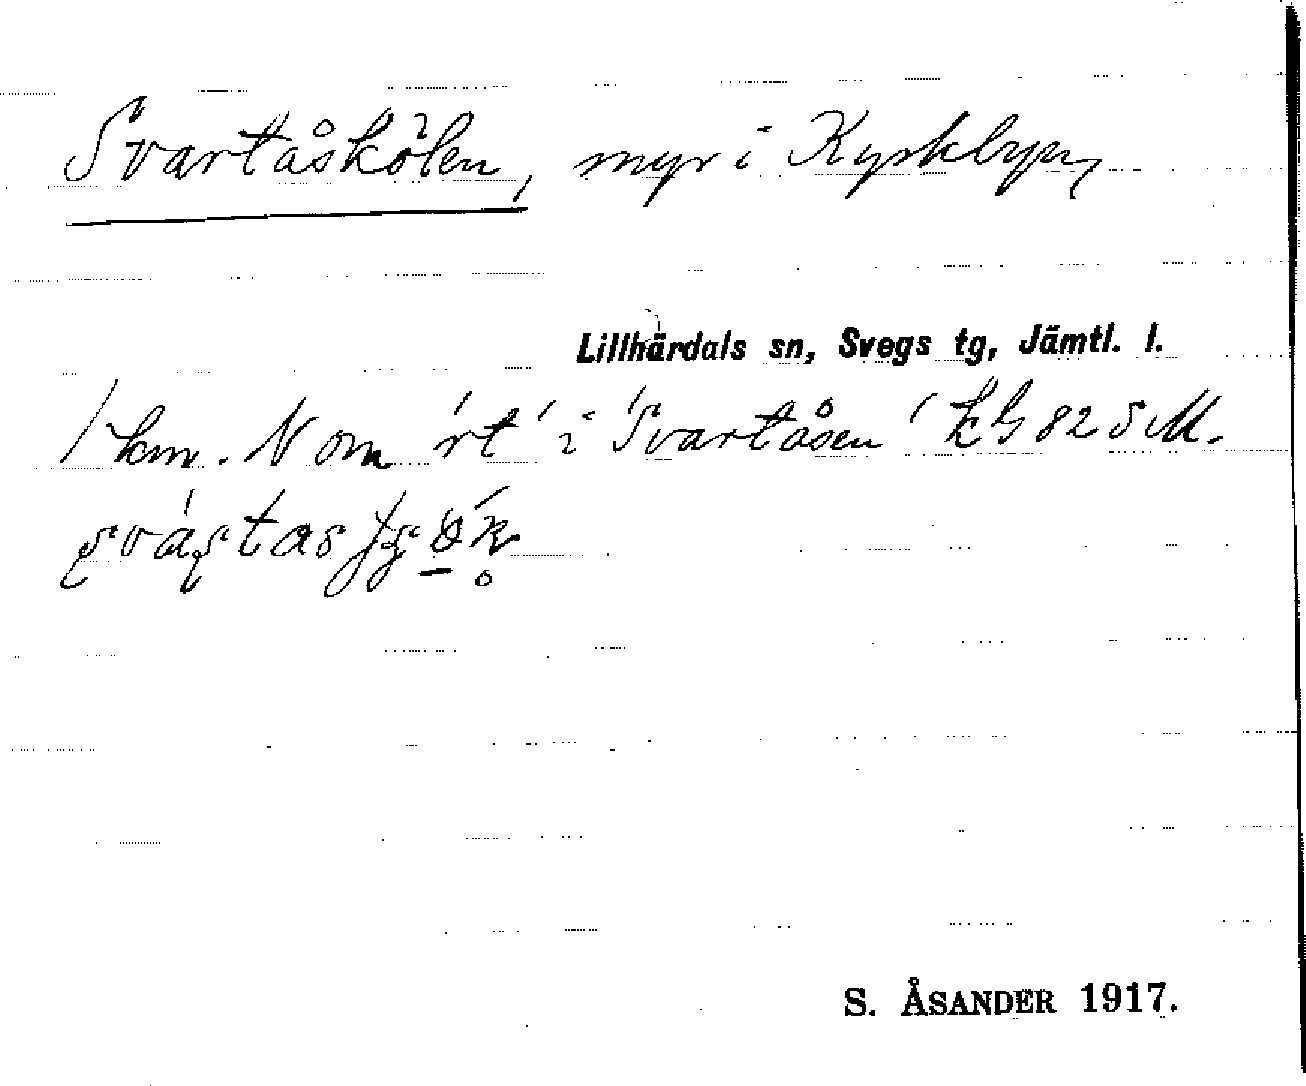 Svartåskölen, myr i Kyrkbyn,
Lillhärdals sn, Svegs tg, Jämtl. l.
1 km. N om "rt" i "Svartåsen" kG 82 SM.
S. ÅSANDER 1917.